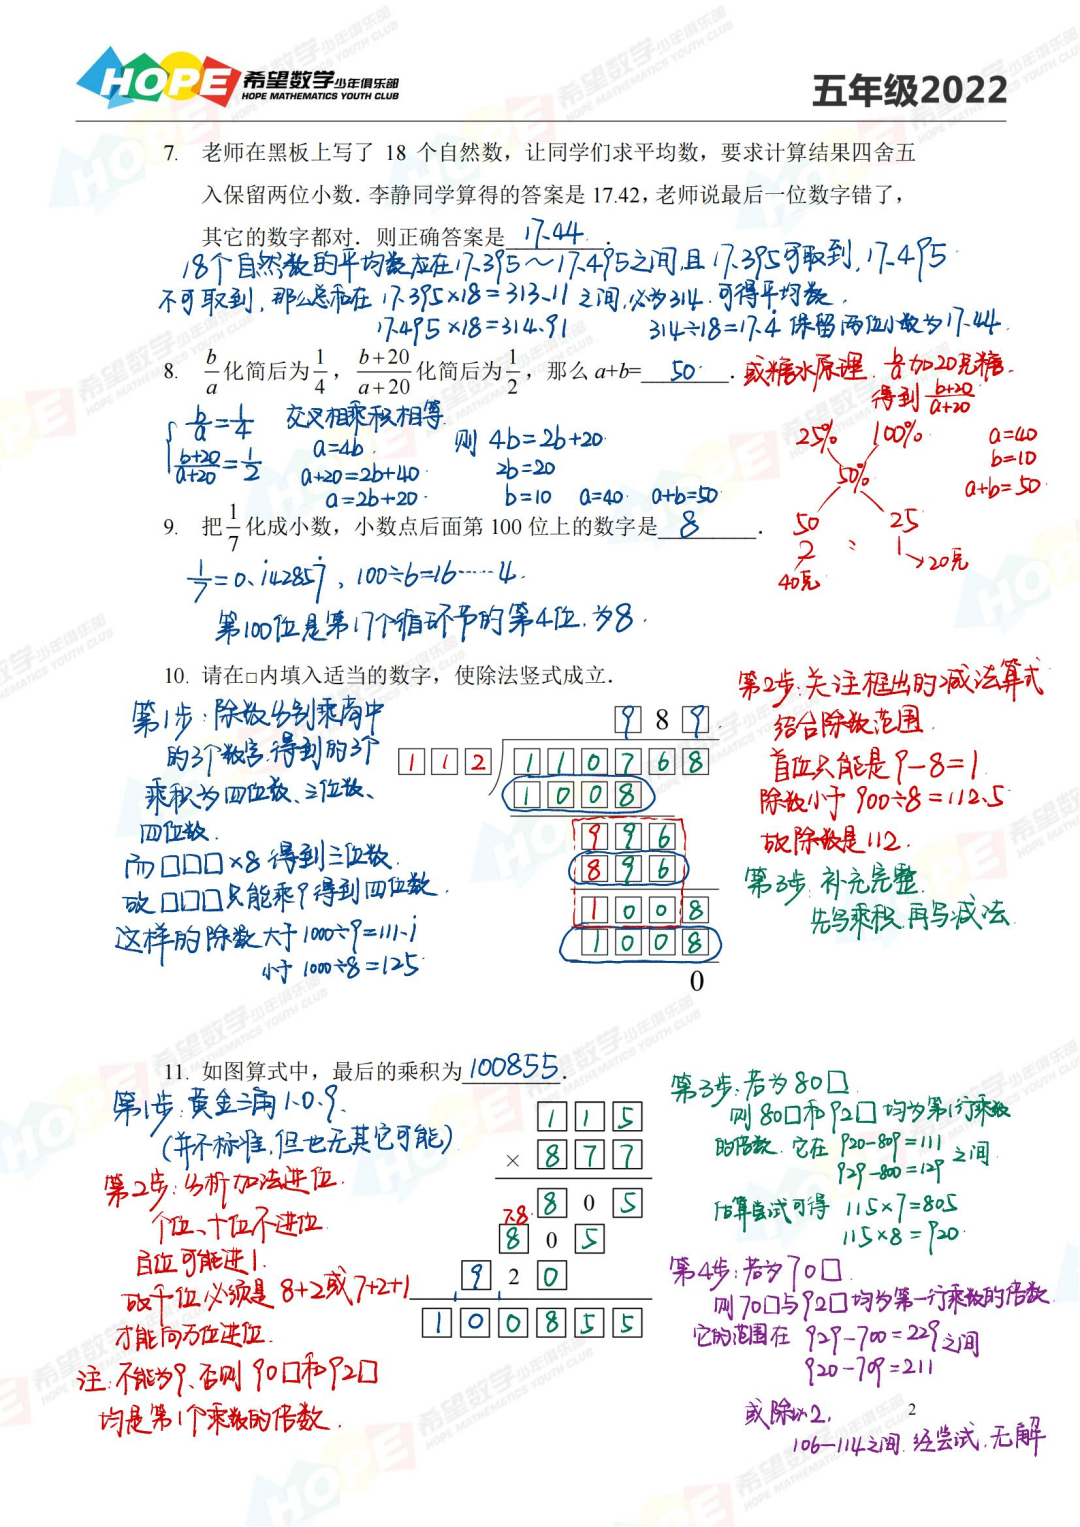 HOPE 希望数学少年俱乐部
HOPE MATHEMATICS YOUTH CLUB
五年级2022
7. 老师在黑板上写了 18 个自然数，让同学们求平均数，要求计算结果四舍五
入保留两位小数．李静同学算得的答案是 17.42，老师说最后一位数字错了，
其它的数字都对．则正确答案是 17.44 ．
18个自然数的平均数应在17.395～17.495之间,且17.395可取到,17.495
不可取到,那么总和在 17.395×18=313.11 之间,必为314.可得平均数.
17.495×18=314.91 314÷18=17.4̇ 保留两位小数为17.44.
8. b/a 化简后为 1/4，(b+20)/(a+20) 化简后为 1/2，那么 a+b= 50 ．
或糖水原理 b/a加20克糖.
得到 (b+20)/(a+20)
{ b/a=1/4 交叉相乘积相等.
(b+20)/(a+20)=1/2
a=4b
a+20=2b+40
a=2b+20
则 4b=2b+20
2b=20
b=10 a=40 a+b=50
25% 100%
50%
50 25
2 : 1→20克
40克
a=40
b=10
a+b=50
9. 把 1/7 化成小数，小数点后面第 100 位上的数字是 8 ．
1/7=0.1̇42857̇, 100÷6=16……4.
第100位是第17个循环节的第4位.为8.
10. 请在□内填入适当的数字，使除法竖式成立．
第1步:除数分别乘商中
的3个数字.得到的3个
乘积为四位数、三位数、
四位数.
而□□□×8得到三位数.
故□□□只能乘9得到四位数.
这样的除数大于1000÷9=111.1̇
小于1000÷8=125
9 8 9
1 1 2 1 1 0 7 6 8
1 0 0 8
9 9 6
8 9 6
1 0 0 8
1 0 0 8
0
第2步:关注框出的减法算式
结合除数范围.
首位只能是9-8=1
除数小于900÷8=112.5
故除数是112.
第3步.补充完整.
先写乘积.再写减法
11. 如图算式中，最后的乘积为 100855 ．
第1步:黄金三角1.0.9.
(并不标准,但也无其它可能)
第2步:分析加法进位.
个位、十位不进位
百位可能进1.
故千位必须是8+2或7+2+1
才能向万位进位.
注:不能为9.否则90□和92□
均是第1个乘数的倍数.
1 1 5
× 8 7 7
8 0 5
7.8.
8 0 5
9 2 0
1 0 0 8 5 5
第3步:若为80□
则80□和92□均为第1行乘数
的倍数.它在 920-809=111 之间
929-800=129
估算尝试可得 115×7=805
115×8=920.
第4步:若为70□
则70□与92□均为第一行乘数的倍数
它的范围在 929-700=229 之间
920-709=211
或除以2.
106-114之间.经尝试.无解
2